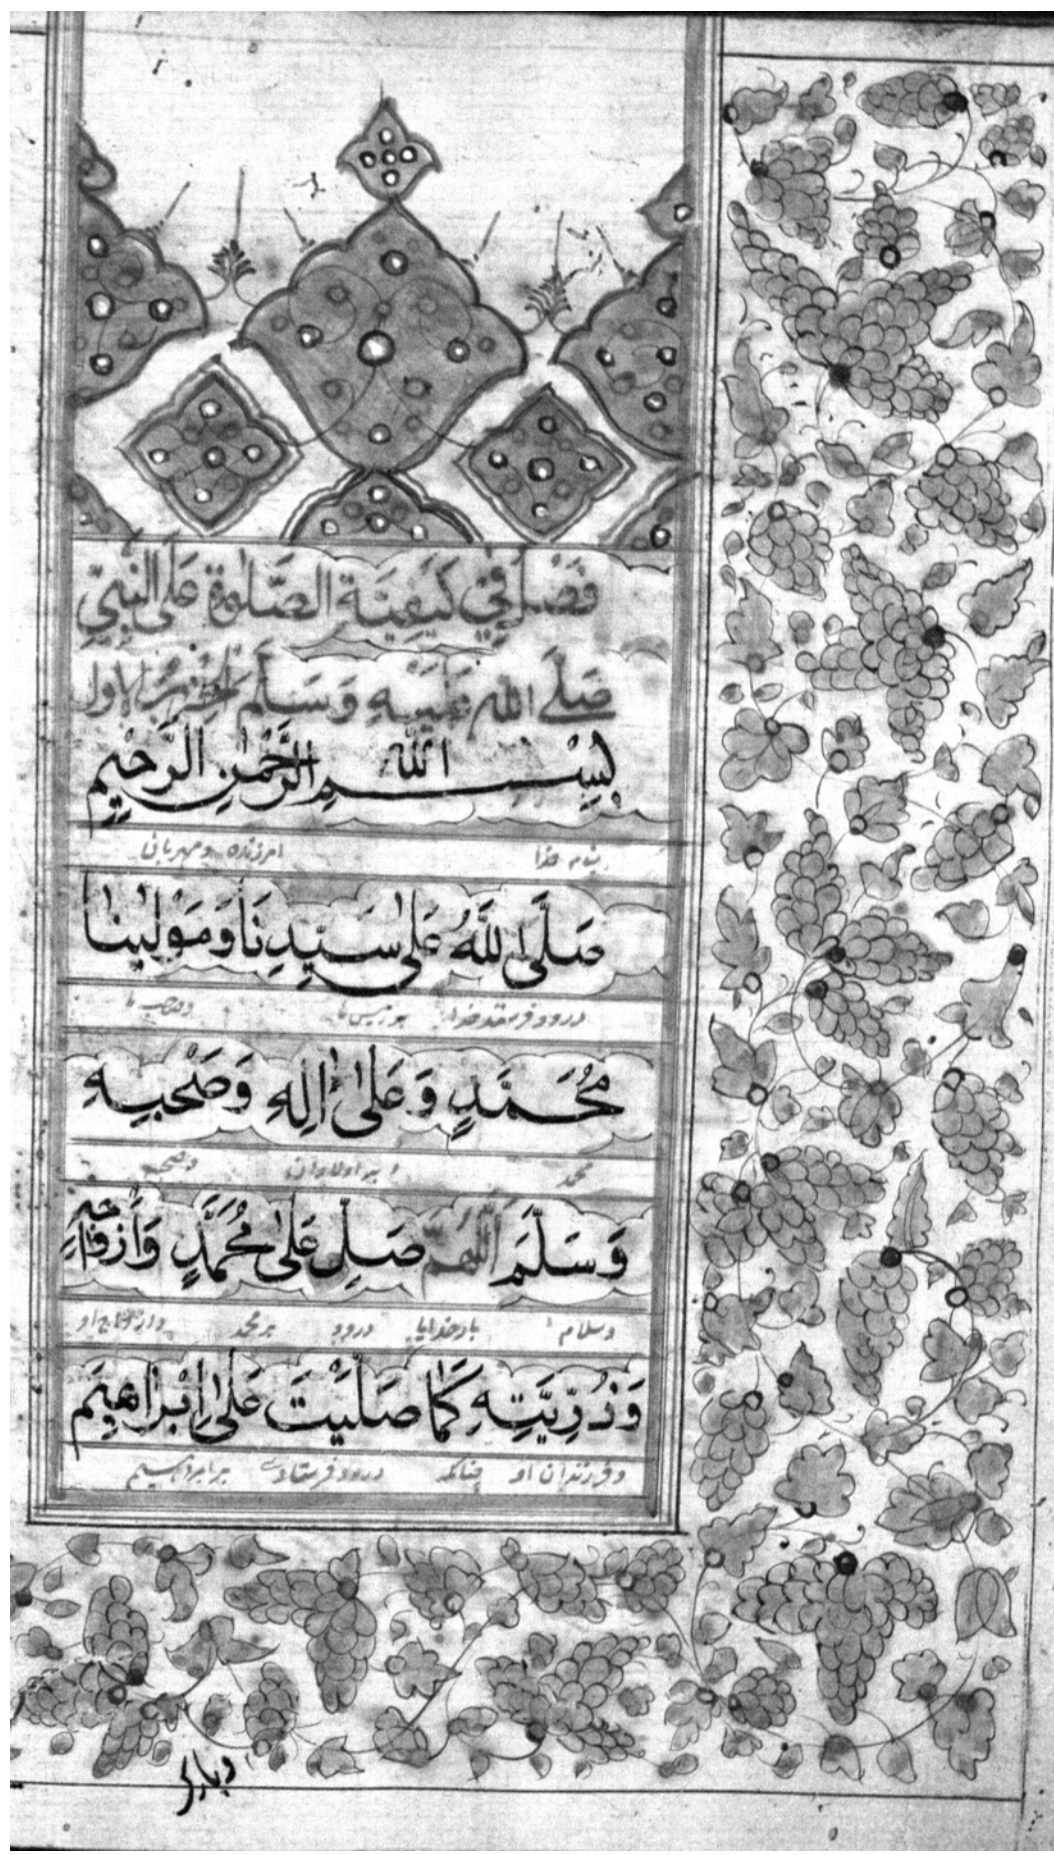 فَصْلٌ فِي كَيْفِيَّةِ الصَّلٰوةِ عَلَى النَّبِيِّ
صَلَّى اللهُ عَلَيْهِ وَسَلَّمَ الحِزْبُ الاول
بِسْمِ اللّٰهِ الرَّحْمٰنِ الرَّحِيْمِ
بنام خدا امرزنده و مهربان
صَلَّى اللّٰهُ عَلٰى سَيِّدِنَا وَمَوْلٰينَا
درود فرستد خدا بر ما
مُحَمَّدٍ وَعَلٰى اٰلِهِ وَصَحْبِهِ
محمد
وَسَلَّمَ اَللّٰهُمَّ صَلِّ عَلٰى مُحَمَّدٍ وَاَزْوَاجِهِ
وسلام بار خدایا درود بر محمد و ازواج او
وَذُرِّيَّتِهِ كَمَا صَلَّيْتَ عَلٰى اِبْرَاهِيْمَ
و فرزندان او چنانکه درود فرستادی بر ابراهیم
وبارك